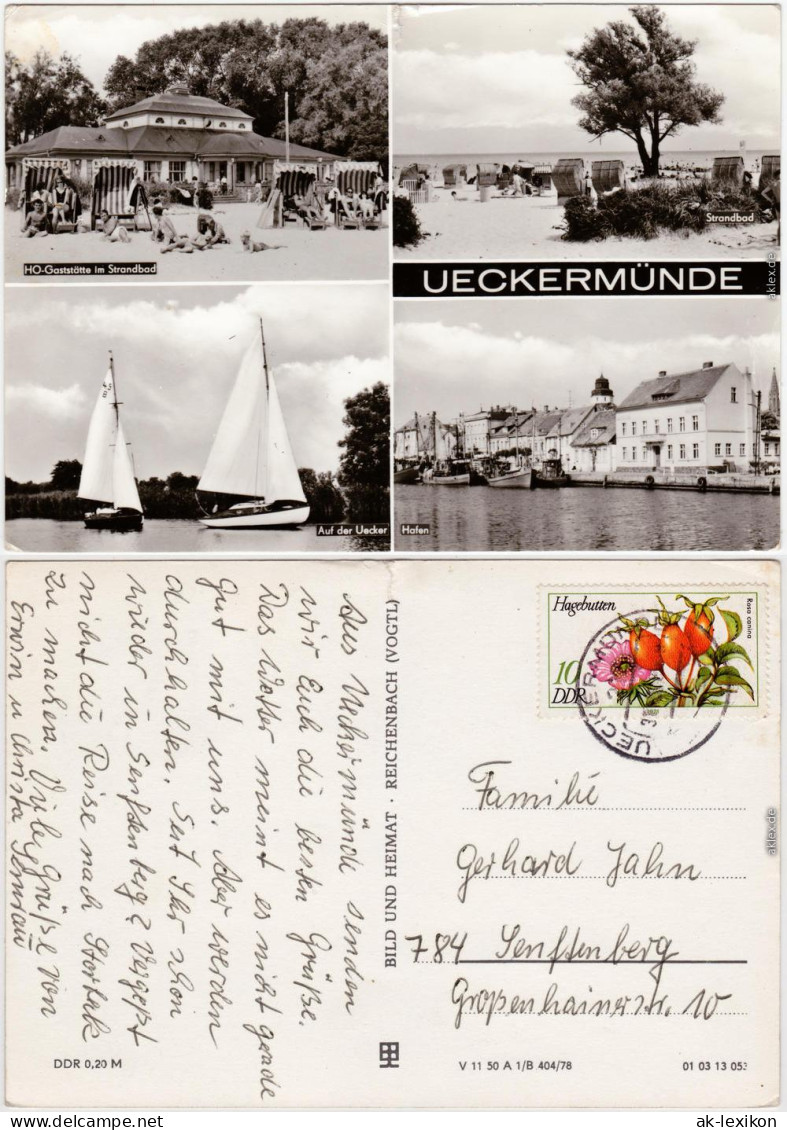 HO-Gaststätte im Strandbad
Strandbad
UECKERMÜNDE
Auf der Uecker
Hafen
aklex.de
Aus Uckermünde senden
wir Euch die besten Grüße.
Das Wetter meint es nicht gerade
gut mit uns. Aber werden
durchhalten. Seit Ihr schon
wieder in Senftenberg? Vergeßt
nicht die Reise nach Storbak
zu machen. Viele Grüße von
Erwin u Christa
DDR 0,20 M
BILD UND HEIMAT · REICHENBACH (VOGTL)
Hagebutten
Rosa canina
10
DDR
UECKERMÜNDE
Familie
Gerhard Jahn
784 Senftenberg
Großenhainerstr. 10
V 11 50 A 1/B 404/78
01 03 13 053
aklex.de
ak-lexikon